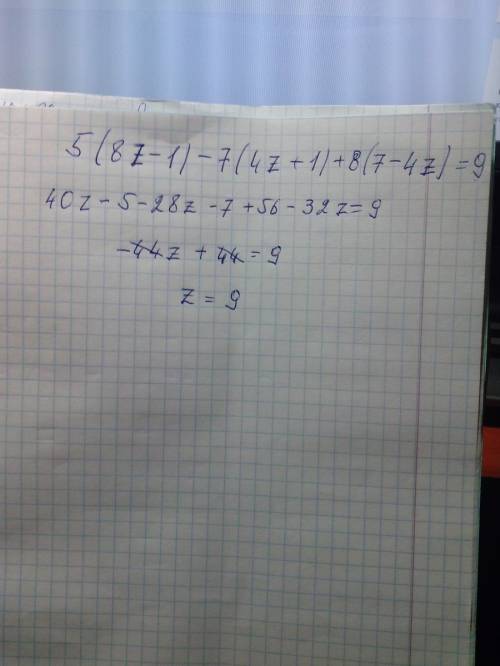 5(8z-1)-7(4z+1)+8(7-4z)=9
40z-5-28z-7+56-32z=9
-44z+44=9
z=9